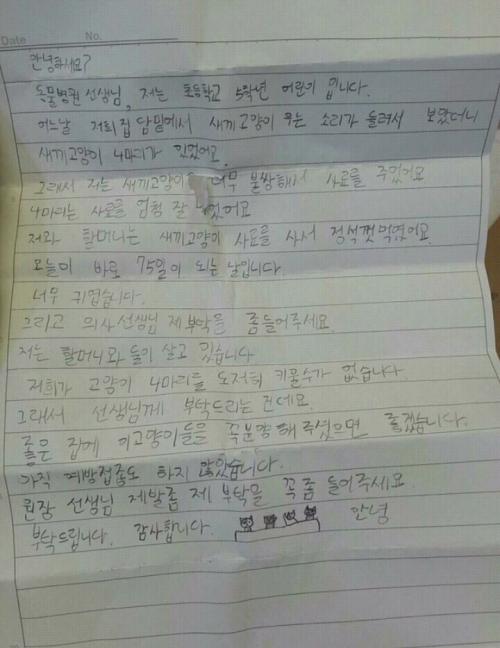 Date No.
안녕하세요?
동물병원 선생님, 저는 초등학교 5학년 어린이 입니다.
어느날 저희 집 담밑에서 새끼고양이 우는 소리가 들려서 보았더니
새끼고양이 4마리가 있었어요.
그래서 저는 새끼고양이 너무 불쌍해서 사료를 주었어요
4마리는 사료를 엄청 잘 었어요
저와 할머니는 새끼고양이 사료를 사서 정석껏 먹였어요
오늘이 바로 75일이 되는 날입니다.
너무 귀엽습니다.
그리고 의사선생님 제 부탁을 좀들어주세요
저는 할머니와 둘이 살고 있습니다
저희가 고양이 4마리를 도저히 키울수가 없습니다.
그래서 선생님께 부탁드리는 건데요.
좋은 집에 이고양이들을 꼭분양 해 주셨으면 좋겠습니다.
아직 예방접종도 하지 않았습니다.
원장 선생님 제발좀 제 부탁을 꼭좀 들어주세요
부탁드립니다. 감사합니다. 안녕